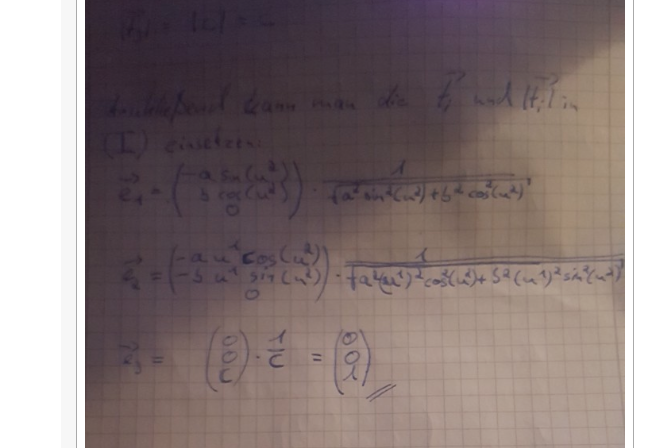 |t⃗₃| = |c| = c
Anschließend kann man die t⃗ᵢ und |t⃗ᵢ| in
(I) einsetzen:
e⃗₁ = (-a sin(u²) b cos(u²) 0) · 1/√(a² sin²(u²) + b² cos²(u²))
e⃗₂ = (-a u¹ cos(u²) -b u¹ sin(u²) 0) · 1/√(a²(u¹)² cos²(u²) + b²(u¹)² sin²(u²))
e⃗₃ = (0 0 c) · 1/c = (0 0 1)